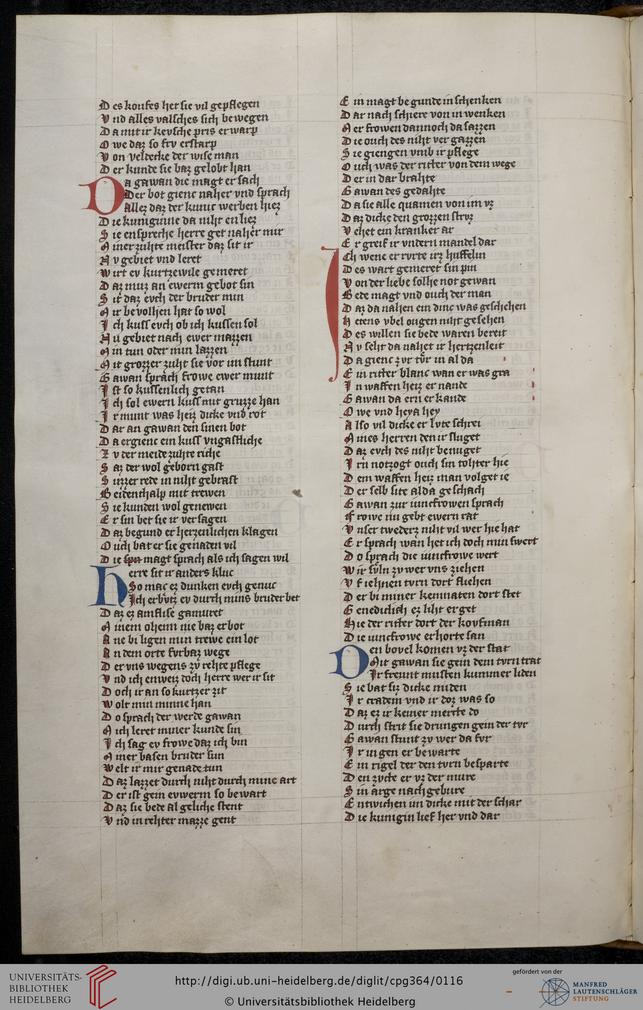 Des koufes het sie vil gepflegen
Vnd alles valsches sich bewegen
Da mit ir kevsche pris erwarp
O we daz so frv erstarp
Von veldecke der wise man
Der kunde sie baz gelobt han
Da gawan die magt ersach
Der bot gienc naher vnd sprach
Allez daz der kunic werben hiez
Die kuniginne da niht enliez
Sie ensprechhe herre get naher mir
Miner zuhte meister daz sit ir
Nv gebiet vnd leret
Wirt ev kurtzewile gemeret
Daz muz an ewerm gebot sin
Sit daz evch der bruder min
Mir bevolhen hat so wol
Ich kuss evch ob ich kussen sol
Nu gebiet nach ewer mazzen
Min tun oder min lazzen
Mit grozzer zuht sie vor im stunt
Gawan sprach frowe ewer munt
Ist so kussenlich getan
Ich sol ewern kuss mit gruzze han
Ir munt was heiz dicke vnd rot
Dar an gawan den sinen bot
Da ergienc ein kuss vngastliche
Zv der meide zuhte riche
Saz der wol geborn gast
Suzzer rede in niht gebrast
Beidenthalp mit trewen
Sie kunden wol genewen
Er sin bet sie ir versagen
Daz begund er herzenlichen klagen
Ouch bat er sie genaden vil
Die magt sprach als ich sagen wil
Herre sit ir anders kluc
So mac ez dunken evch genuc
Ich erbvtz ev durch mins bruder bet
Daz ez amflise gamuret
Minem oheim nie baz erbot
Ane bi ligen min trewe ein lot
An dem orte fvrbaz wege
Der vns wegens zv rehte pflege
Vnd ich enweiz doch herre wer ir sit
Doch ir an so kurtzer zit
Wolt min minne han
Do sprach der werde gawan
Mich leret miner kunde sin
Ich sag ev frowe daz ich bin
Miner basen bruder sun
Welt ir mir genade tun
Daz lazzet durch niht durch mine art
Der ist gein evwerm so bewart
Daz sie bede al geliche stent
Vnd in rehter mazze gent
Ein magt begunde in schenken
Dar nach schiere von in wenken
Mer frowen dannoch da sazzen
Die ouch des niht vergazzen
Sie giengen vmb ir pflege
Ouch was der ritter von dem wege
Der in dar brahte
Gawan des gedahte
Da sie alle quamen von im vz
Daz dicke den grozzen struz
Vehet ein kranker ar
Er greif ir vndern mandel dar
Ich wene er rvrte irz huffelin
Des wart gemeret sin pin
Von der liebe solhe not gewan
Bede magt vnd ouch der man
Daz da nahen ein dinc was geschehen
Hetens vbel ougen niht gesehen
Des willen sie bede waren bereit
Nv seht da nahet ir hertzenleit
Da gienc zvr tvr in al da
Ein ritter blanc wan er was gra
In waffen heiz er nande
Gawan da ern erkande
Owe vnd heya hey
Also vil dicke er lvte schrei
Mines herren den ir sluget
Daz evch des niht benuget
Irn notzogt ouch sin tohter hie
Dem waffen heiz man volget ie
Der selb site alda geschach
Gawan zur iuncfrowen sprach
Frowe nu gebt ewern rat
Vnser twederz niht vil wer hie hat
Er sprach wan het ich doch min swert
Do sprach die iuncfrowe wert
Wir svln zv wer vns ziehen
Vf iehnen tvrn dort fliehen
Der bi miner kemnaten dort stet
Genedichlich ez liht erget
Hie der ritter dort der koufman
Die iuncfrowe erhorte san
Den bovel komen vz der stat
Mit gawan sie gein dem tvrn trat
Ir freunt musten kummer liden
Sie bat siz dicke miden
Ir cradem vnd ir doz was so
Daz ez ir keiner mercte do
Durch strit sie drungen gein der tvr
Gawan stunt zv wer da fvr
Ir in gen er bewarte
Ein rigel der den tvrn besparte
Den zvcte er vz der mure
Sin arge nachgebure
Entwichen im dicke mit der schar
Die kunigin lief her vnd dar
UNIVERSITÄTS-
BIBLIOTHEK
HEIDELBERG
http://digi.ub.uni-heidelberg.de/diglit/cpg364/0116
© Universitätsbibliothek Heidelberg
gefördert von der
MANFRED
LAUTENSCHLÄGER
STIFTUNG